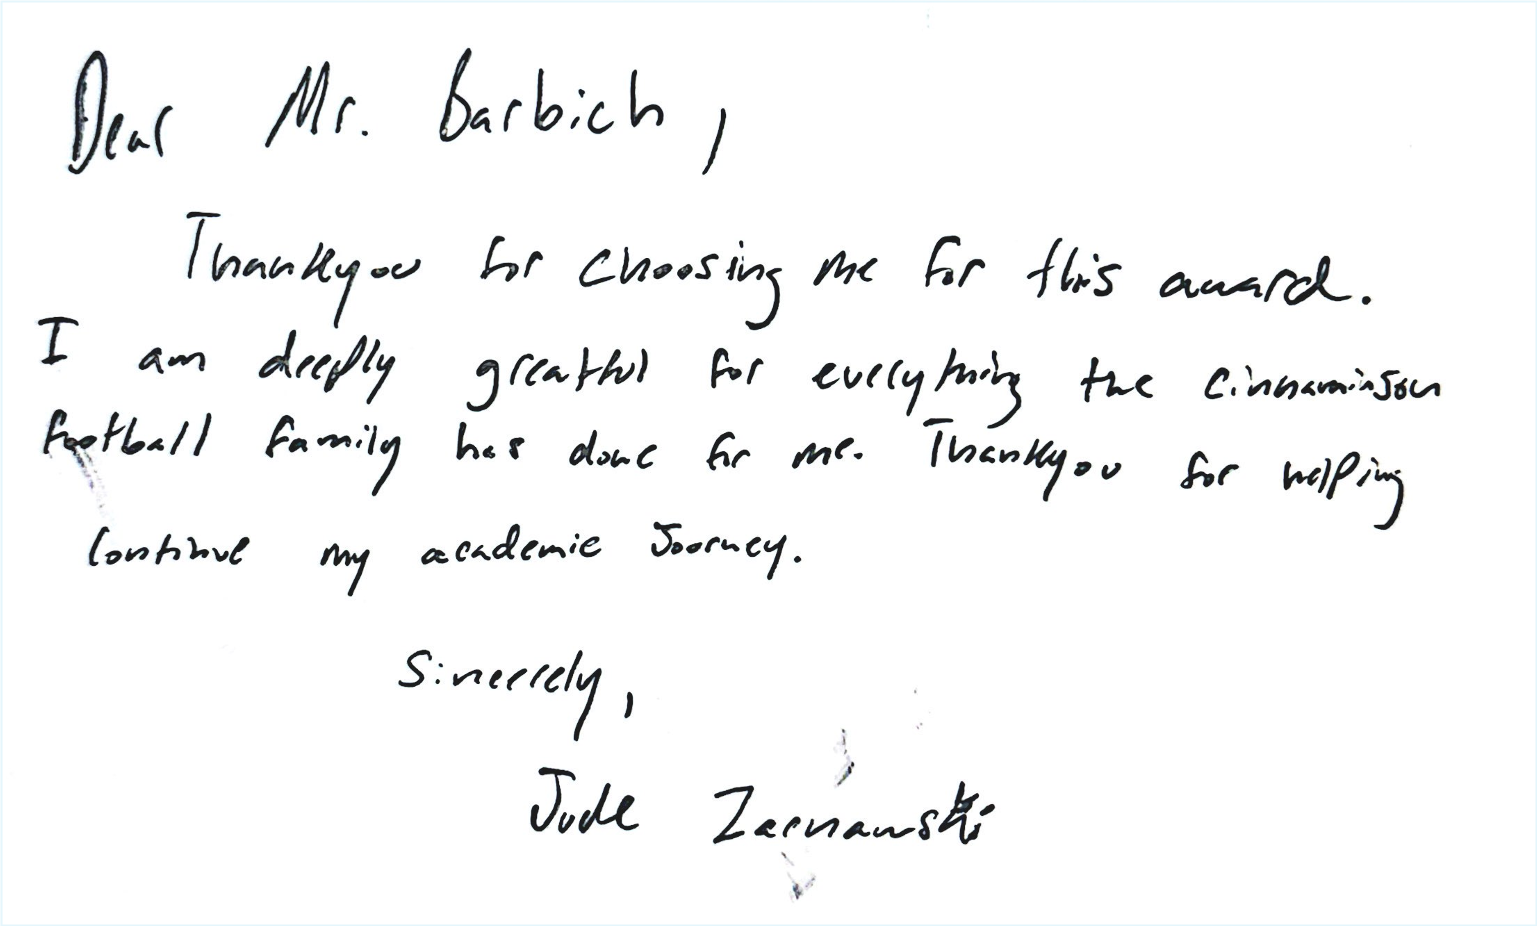 Dear Mr. Barbich,
Thankyou for choosing me for this award.
I am deeply greatful for everything the Cinnaminson
football family has done for me. Thankyou for helping
continue my academic Journey.
Sincerely,
Jude Zacnawski